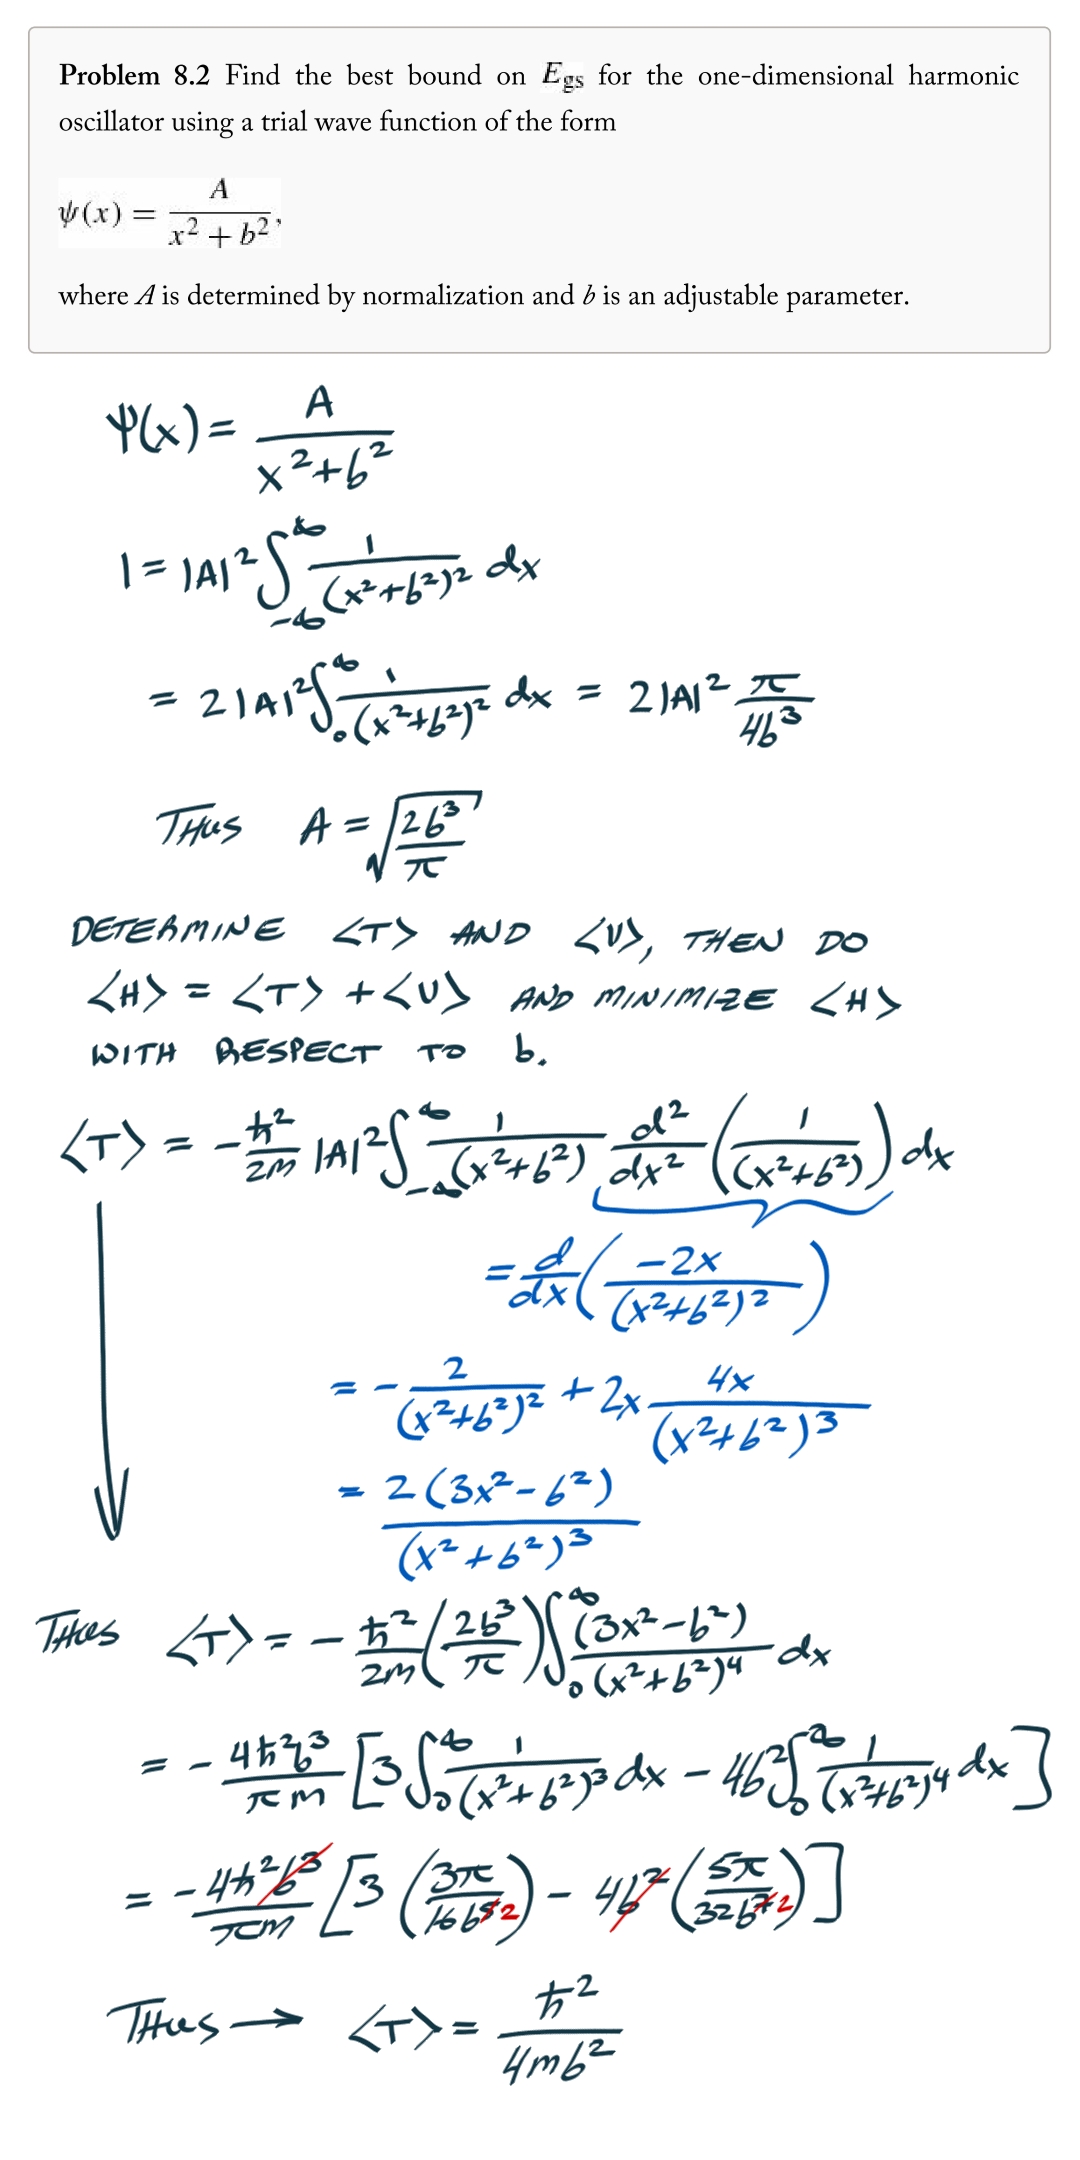 Problem 8.2 Find the best bound on E_gs for the one-dimensional harmonic
oscillator using a trial wave function of the form
ψ(x) = A / (x² + b²),
where A is determined by normalization and b is an adjustable parameter.
Ψ(x) = A / (x²+b²)
1 = |A|² ∫_{-∞}^{∞} 1/(x²+b²)² dx
= 2|A|² ∫_0^∞ 1/(x²+b²)² dx = 2|A|² π/4b³
THUS A = √(2b³/π)
DETERMINE <T> AND <V>, THEN DO
<H> = <T> + <V> AND MINIMIZE <H>
WITH RESPECT TO b.
<T> = -ħ²/2m |A|² ∫_{-∞}^{∞} 1/(x²+b²) d²/dx² (1/(x²+b²)) dx
= d/dx (-2x/(x²+b²)²)
= - 2/(x²+b²)² + 2x 4x/(x²+b²)³
= 2(3x²-b²)/(x²+b²)³
THUS <T> = - ħ²/2m (2b³/π) ∫_0^∞ (3x²-b²)/(x²+b²)⁴ dx
= - 4ħ²b³/πm [3 ∫_0^∞ 1/(x²+b²)³ dx - 4b² ∫_0^∞ 1/(x²+b²)⁴ dx]
= - 4ħ²b³/πm [3 (3π/16b⁵ 2) - 4b² (5π/32b⁷ 2)]
THUS → <T> = ħ²/4mb²